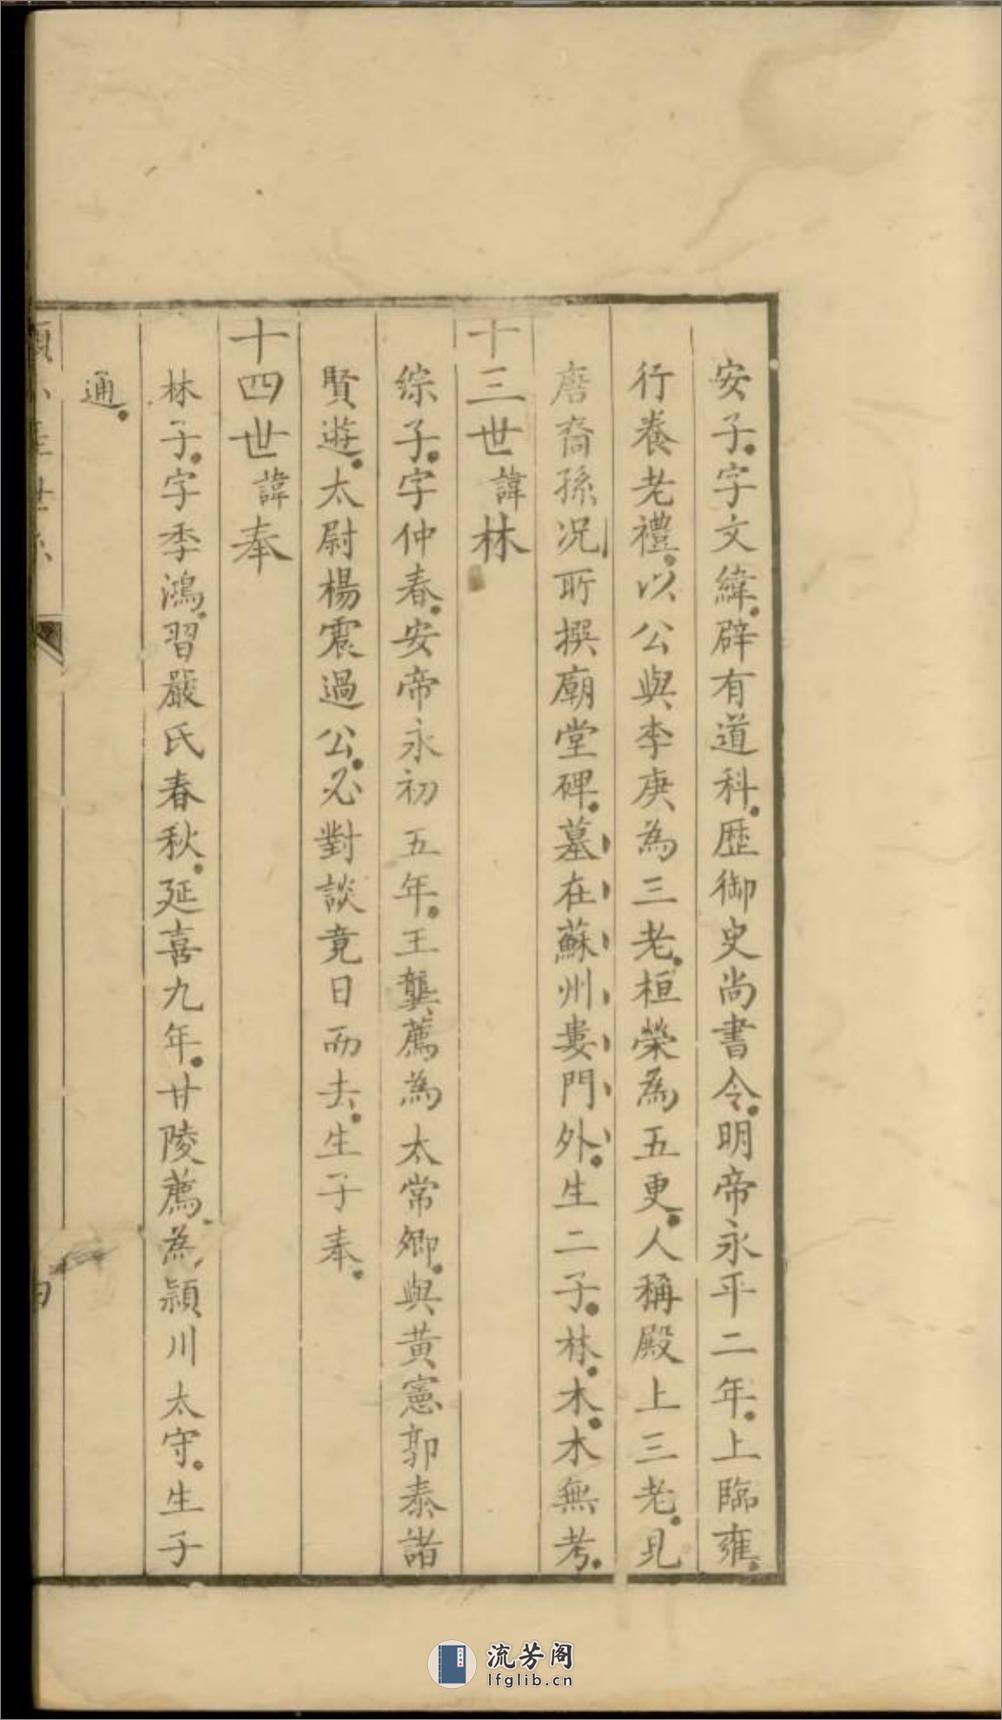 安子字文緯辟有道科歴御史尚書令明帝永平二年上臨雍
行養老禮以公與李庚為三老桓榮為五更人稱殿上三老見
唐裔孫况所撰廟堂碑墓在蘇州婁門外生二子林木木無考
十三世諱林
綜子字仲春安帝永初五年王龔薦為太常卿與黄憲郭泰諸
賢遊太尉楊震過公必對談竟日而去生子奉
十四世諱奉
林子字季鴻習嚴氏春秋延喜九年甘陵薦為潁川太守生子
通
流芳阁
lfglib.cn